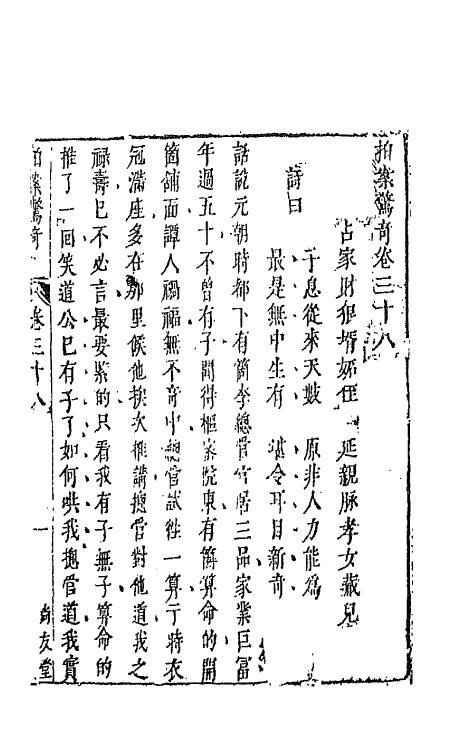 拍案驚奇卷三十八
占家財狠壻妬侄　延親脉孝女藏兒
詩曰
子息從來天數　原非人力能爲
最是無中生有　堪令耳目新奇
話說元朝時都下有箇李總管官居三品家業巨富
年過五十不曾有子聞得樞密院東有箇算命的開
箇鋪面譚人禍福無不奇中總管試往一算于時衣
冠滿座多在那里候他挨次推講總管對他道我之
禄壽已不必言最要緊的只看我有子無子算命的
推了一回笑道公已有子了如何哄我總管道我實
拍案驚奇　卷三十八　一　尚友堂